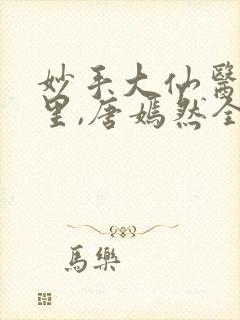 妙手大仙醫
里,唐嫣然全
馬樂